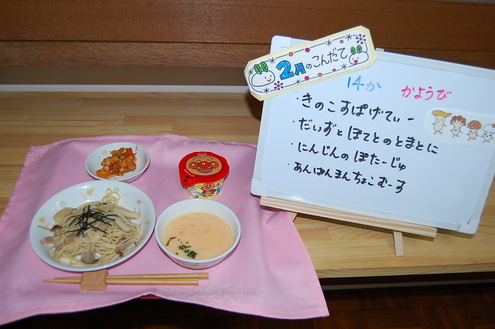 2月のこんだて
14か かようび
・きのこすぱげてぃー
・だいずとぽてとのとまとに
・にんじんのぽたーじゅ
・あんぱんまんちょこむーす